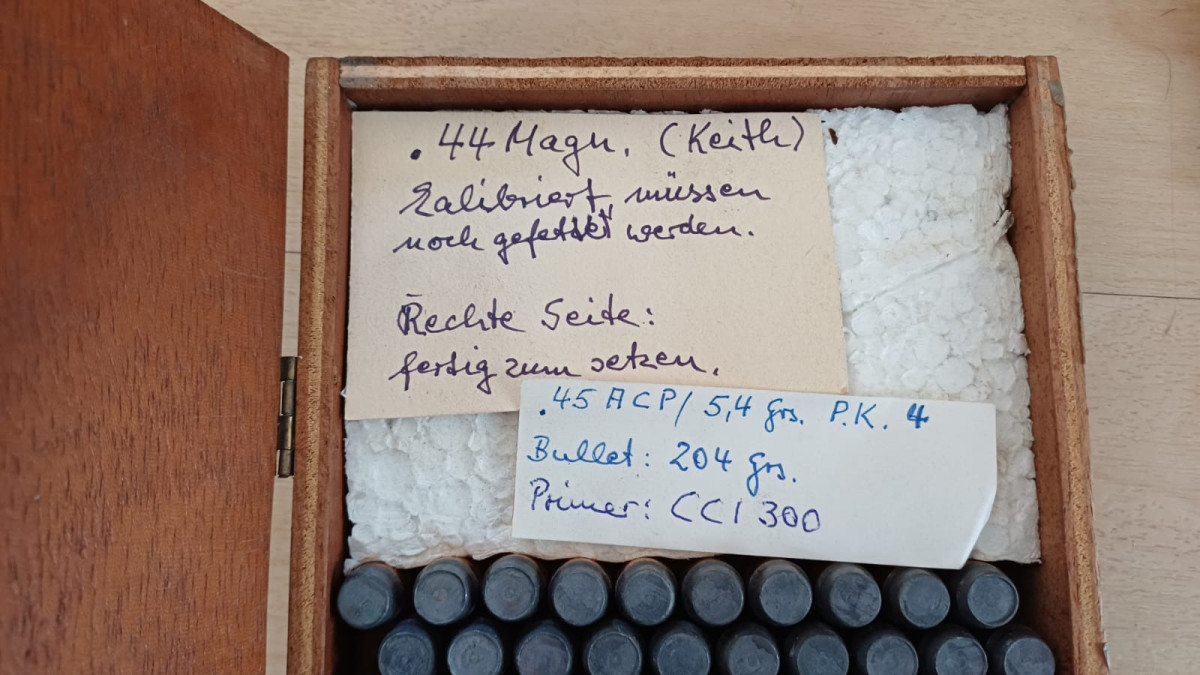 .44 Magn. (Keith)
Kalibriert, müssen
noch gefettet werden.
Rechte Seite:
fertig zum setzen.
.45 ACP/ 5,4 Grs. P.K. 4
Bullet: 204 Grs.
Primer: CCI 300